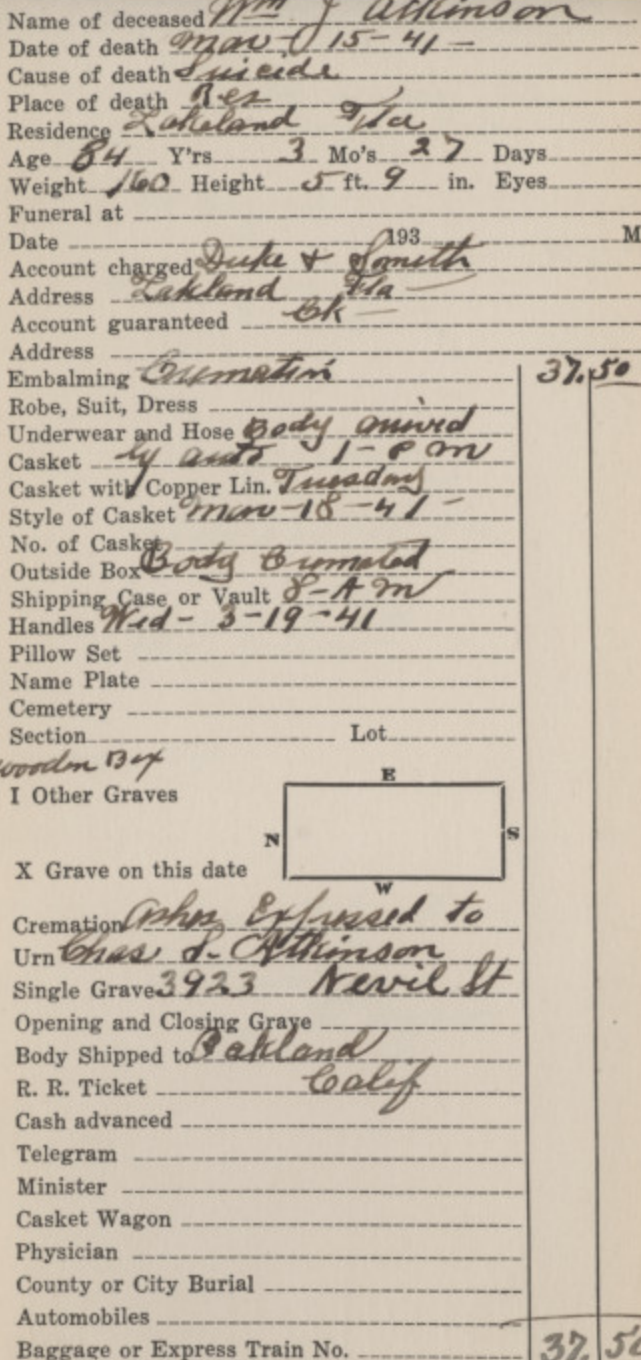 Name of deceased Wm J Atkinson
Date of death Mar - 15 - 41 -
Cause of death Suicide
Place of death Res
Residence Lakeland Fla
Age 84 Y'rs 3 Mo's 27 Days
Weight 160 Height 5 ft. 9 in. Eyes
Funeral at
Date 193 M
Account charged Duke & Smith
Address Lakland Fla
Account guaranteed Ck
Address
Embalming Cremation 37.50
Robe, Suit, Dress
Underwear and Hose Body arrived
Casket by auto 1 - P m
Casket with Copper Lin. Tuesday
Style of Casket Mar - 18 - 41 -
No. of Casket
Outside Box Body Cremated
Shipping Case or Vault 8 - A m
Handles Wed - 3 - 19 - 41
Pillow Set
Name Plate
Cemetery
Section Lot
wooden Box
I Other Graves
E
N S
X Grave on this date
W
Cremation Ashes Expressed to
Urn Chas S. Atkinson
Single Grave 3923 Nevil St
Opening and Closing Grave
Body Shipped to Oakland
R. R. Ticket Calif
Cash advanced
Telegram
Minister
Casket Wagon
Physician
County or City Burial
Automobiles
Baggage or Express Train No. 37 50